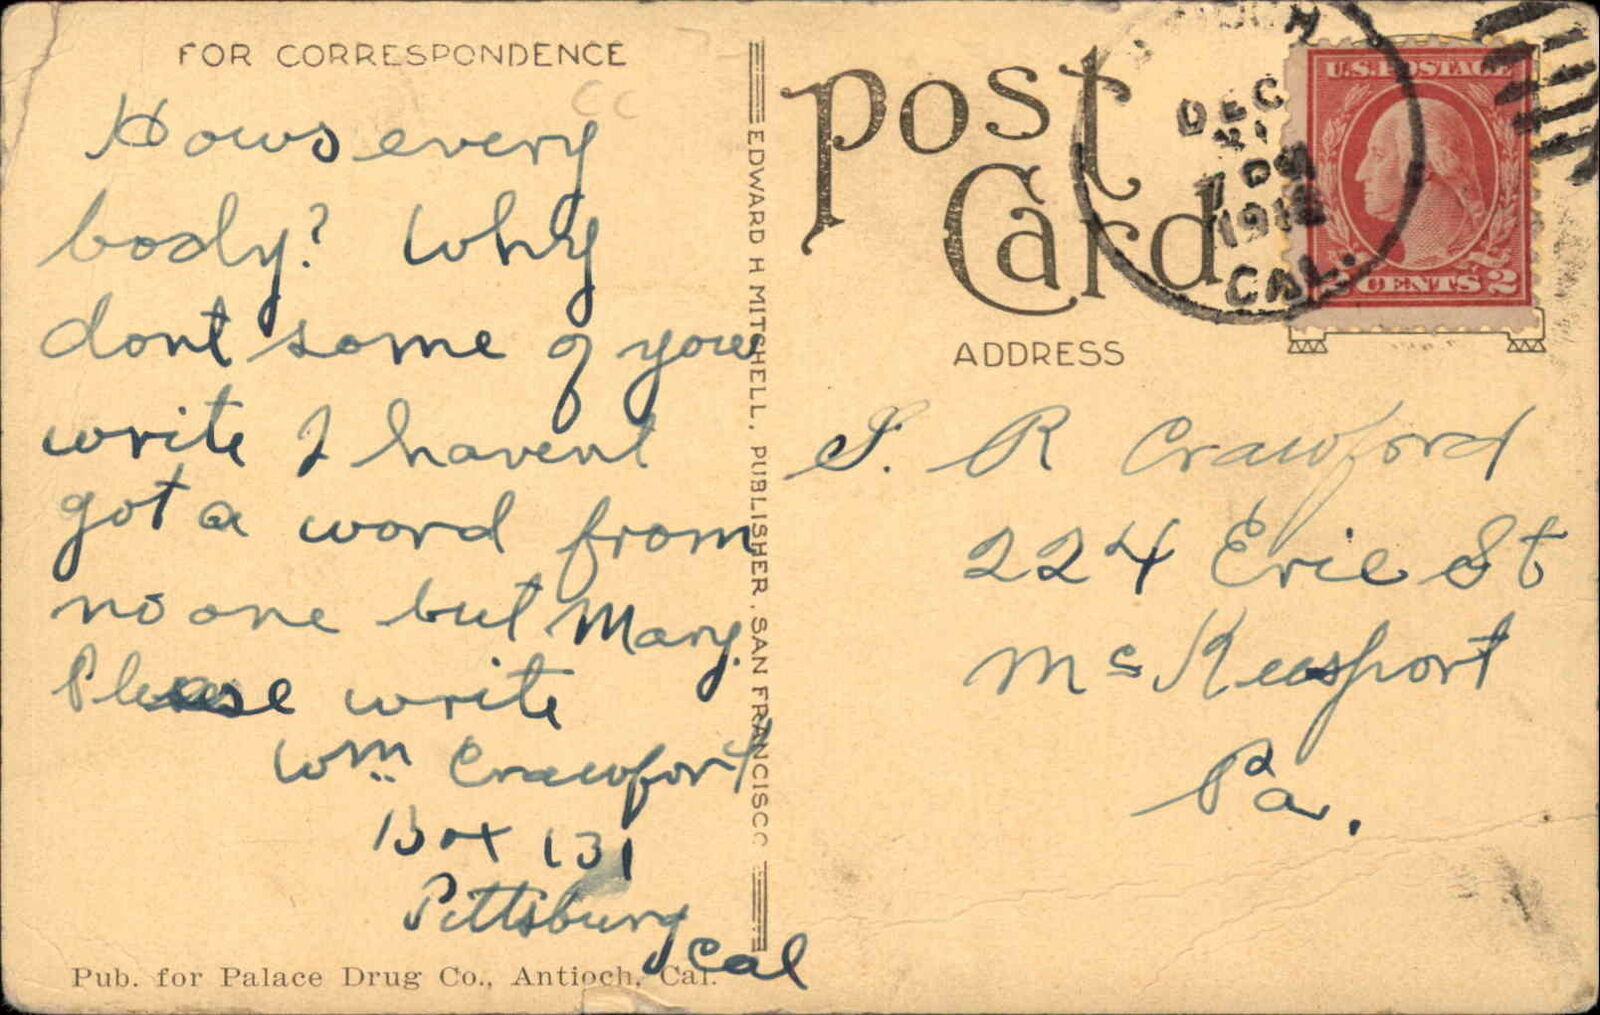 FOR CORRESPONDENCE
Hows every
body? Why
dont some of you
write I havent
got a word from
no one but Mary.
Please write
Wm Crawford
Box 131
Pittsburg
Cal
Pub. for Palace Drug Co., Antioch, Cal.
EDWARD H MITCHELL, PUBLISHER, SAN FRANCISCO
Post
Card
DEC
CAL.
U.S. POSTAGE
CENTS 2
ADDRESS
S. R Crawford
224 Erie St
Mc Keesport
Pa.